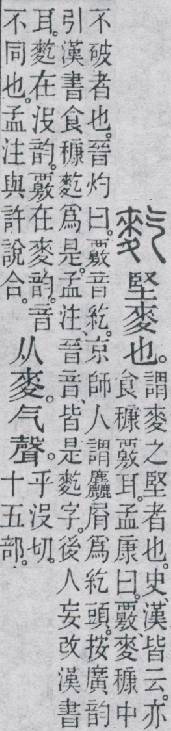 麧堅麥也。謂麥之堅者也。史漢皆云。亦
食穅覈耳。孟康曰。覈、麥穅中
不破者也。晉灼曰。覈音紇。京師人謂麤屑爲紇頭。按廣韵
引漢書食穅麧爲是。孟注晉音、皆是麧字。後人妄改漢書
耳。麧在沒韵。覈在麥韵。音
不同也。孟注與許說合。
从麥。气聲。乎沒切。
十五部。